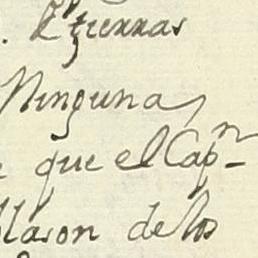 tierras
Ninguna
que el Capn
de los